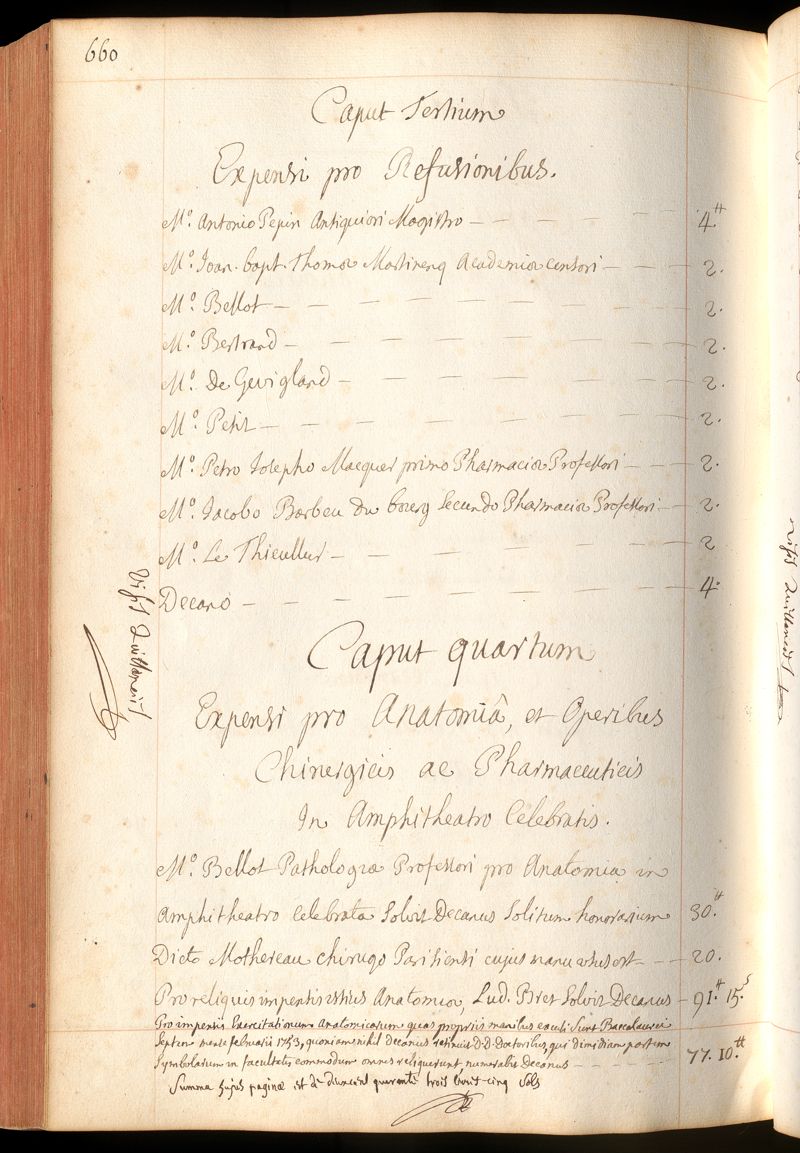 660
Caput Tertium
Expensi pro Refusionibus.
M.º Antonio Pepin Antiquiori Magistro — 4.tt
M.º Joan. bapt. Thomæ Martinenq Academiæ censori — 2.
M.º Bellot — 2.
M.º Bertrand — 2.
M.º De Gevigland — 2.
M.º Petit — 2.
M.º Petro Josepho Macquer primo Pharmaciæ Professori — 2.
M.º Jacobo Barbeu Du bourg Secundo Pharmaciæ Professori — 2.
M.º Le Thieullier — 2
Decano — 4.
Caput quartum
Expensi pro Anatomiâ, et Operibus
Chirurgicis ac Pharmaceuticis
In Amphitheatro Celebratis.
M.º Bellot Pathologiæ Professori pro Anatomia in
Amphitheatro celebrata Solvit Decanus Solitum honorarium 30.tt
Dicto Mothereau chirurgo Parisiensi cujus manu usus est — 20.
Pro reliquis impensis istius Anatomiæ, Lud. Bret Solvit Decanus — 91.tt 15.s
Pro impensis Exercitationum Anatomicarum quas propriis manibus executi Sunt Baccalaurei
Septem mense februarii 1753, quoniam nihil decanus retinuit D.D. Doctoribus, qui dimidiam partem
Symbolarum in facultatis commodum omnes reliquerunt numerabit Decanus — 77. 10.tt
Summa hujus paginæ est de deux cent quarante trois livres cinq Sols